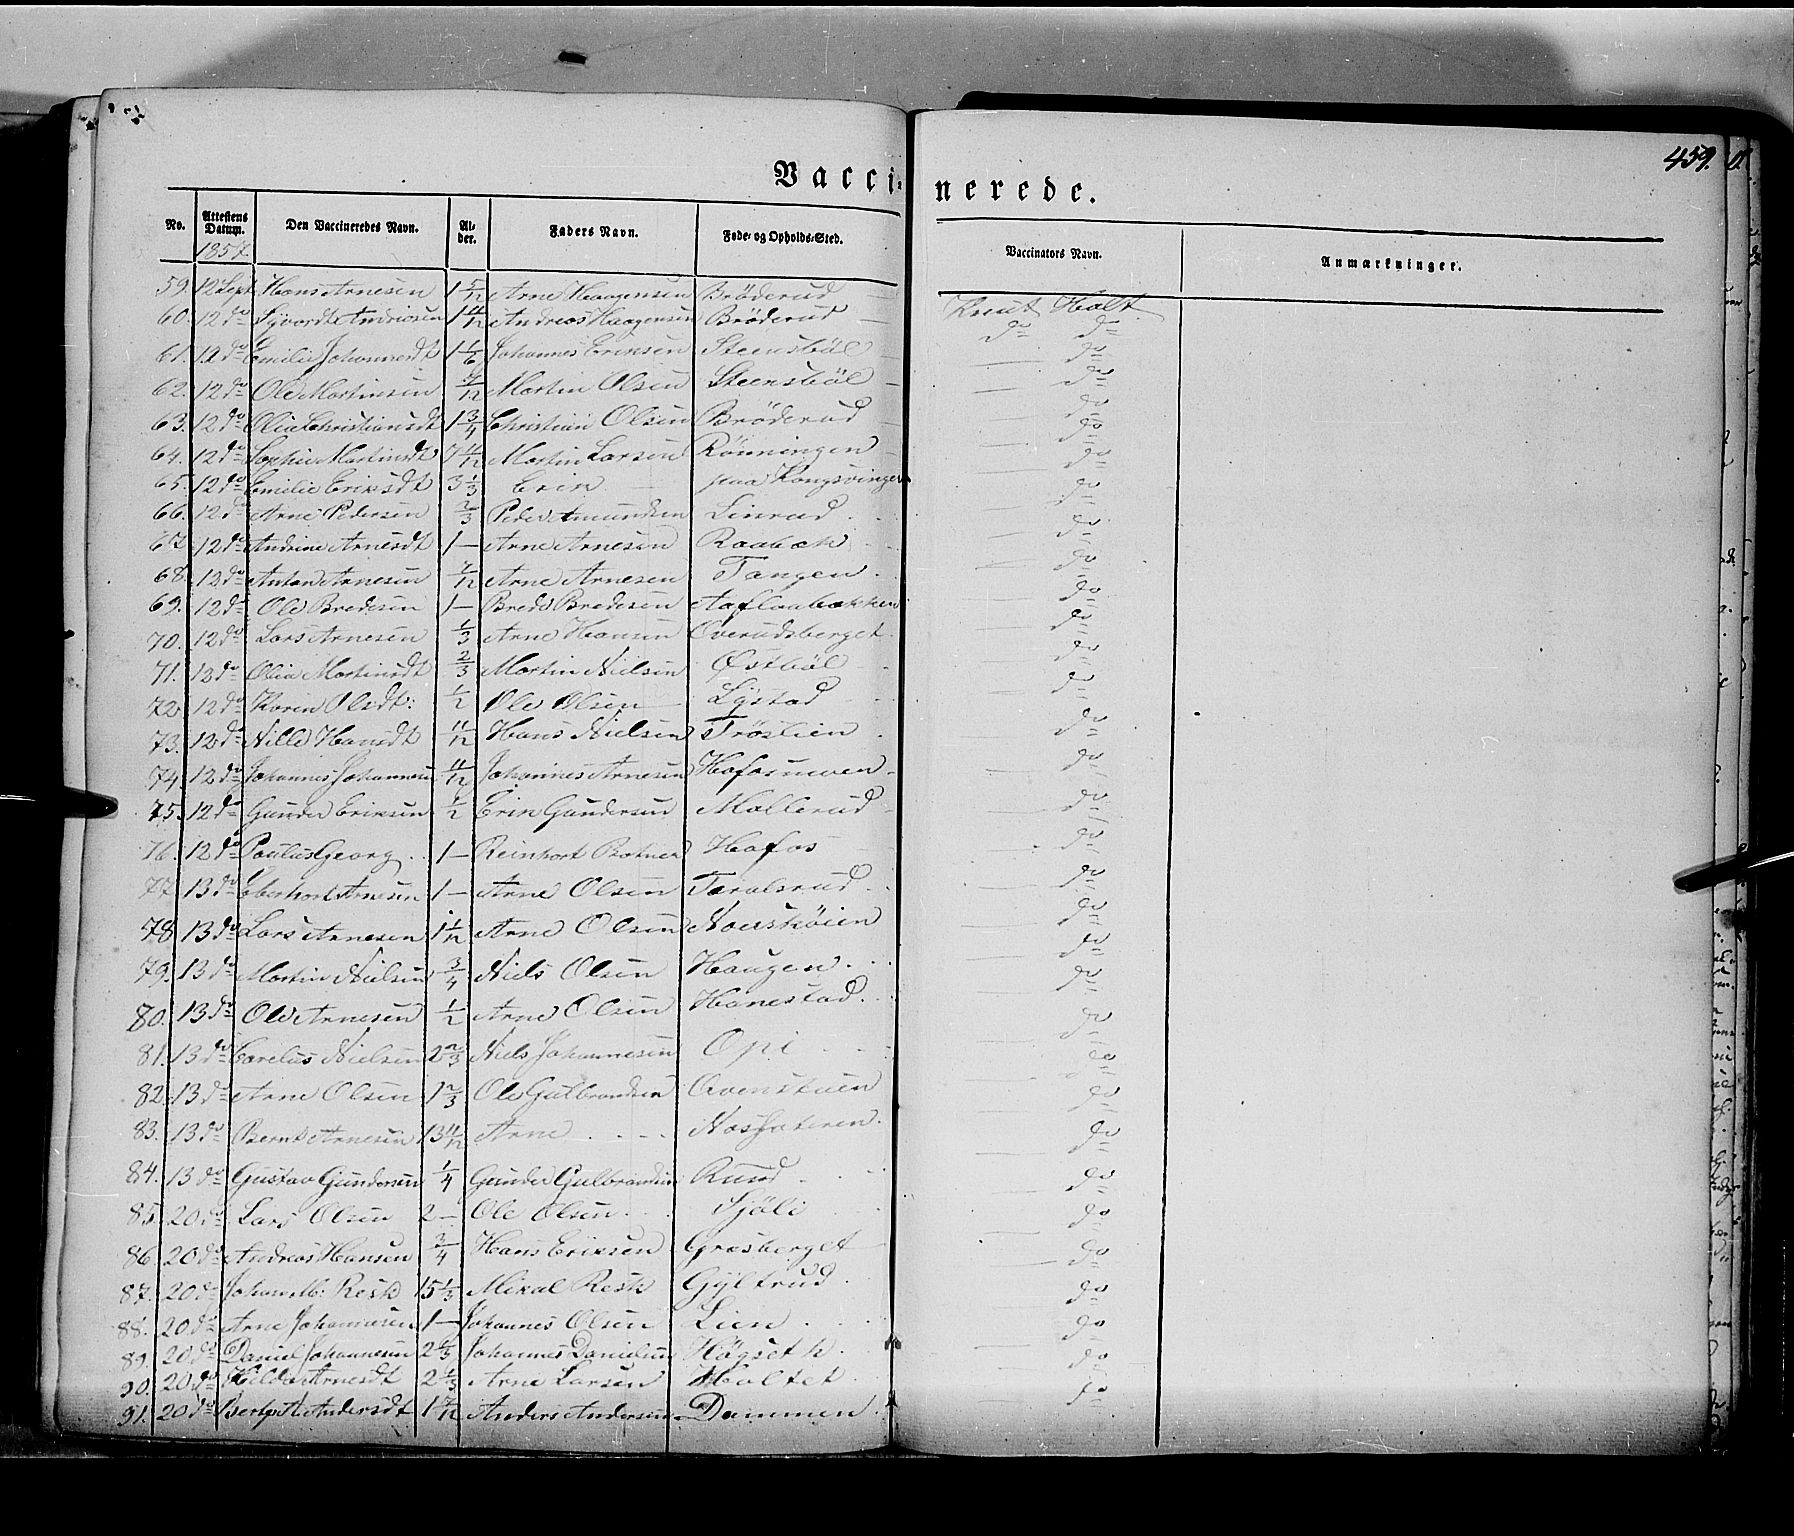 459.
Vaccinerede.
No. Attestens Datum. Den Vaccineredes Navn. Alder. Faders Navn. Føde- og Opholds-Sted. Vaccinators Navn. Anmærkninger.
1857.
59. 12 Sept Hans Arnesen 1 5/12 Arne Haagensen Bröderud Knut Holt
60. 12 do Syvordt Andreasen 1 4/12 Andreas Haagensen Bröderud do do
61. 12 do Emilie Johannesdt 1 1/6 Johannes Eriksen Steensböl do
62. 12 do Ole Martinsen 9/12 Martin Olsen Steensböl do
63. 12 do Olia Christiansdt 1 3/4 Christian Olsen Bröderud do
64. 12 do Sophie Martinsdt 7 11/12 Martin Larsen Rönningen do
65. 12 do Emilie Eriksdt 3 1/3 Erik paa Kongsvinger do
66. 12 do Arne Pedersen 2/3 Peder Amundsen Linrud do
67. 12 do Andrine Arnesdt 1 Arne Arnesen Raabæk do
68. 12 do Anton Arnesen 7/12 Arne Arnesen Tangen do
69. 12 do Ole Bredesen 1 Brede Bredesen Aaflaabakken do
70. 12 do Lars Arnesen 1/3 Arne Hansen Overudsberget do
71. 12 do Olia Martinsdt 2/3 Martin Nielsen Østböl do
72. 12 do Karen Olsdt: 1/2 Ole Olsen Lystad do
73. 12 do Nille Hansdt 11/12 Hans Nielsen Tröslien do
74. 12 do Johannes Johannesen 11/12 Johannes Arnesen Hofosmoen do
75. 12 do Gunder Eriksen 1/2 Erik Gundersen Mollerud do
76. 12 do Paulus Georg 1 Reinhart Botner Hofos do
77. 13 do Eberhart Arnesen 1 Arne Olsen Taralsrud do
78. 13 do Lars Arnesen 1 1/12 Arne Olsen Norsköien do
79. 13 do Martin Nielsen 3/4 Niels Olsen Haugen do
80. 13 do Ole Arnesen 1/2 Arne Olsen Hanestad do
81. 13 do Carelius Nielsen 2 2/3 Niels Johannesen Opi do
82. 13 do Arne Olsen 1 2/3 Ole Gulbrandsen Ovenstuen do
83. 13 do Bernt Arnesen 13 11/12 Arne Nossæteren do
84. 13 do Gustav Gundersen 1/4 Gunder Gulbrandsen Ruud do
85. 20 do Lars Olsen 2 Ole Olsen Sjöli do
86. 20 do Andreas Hansen 3/4 Hans Eriksen Græsberget do
87. 20 do Johan M: Resk 15 1/3 Mikal Resk Gyltrud do
88. 20 do Arne Johannesen 1 Johannes Olsen Lien do
89. 20 do Daniel Johannesen 2 2/3 Johannes Danielsen Högseth do
90. 20 do Hilda Arnesdt 2 1/3 Arne Larsen Holtet do
91. 20 do Andersdt 1 7/12 Anders Andersen Dammen do